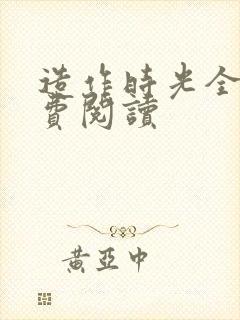 造作時光全
費閱讀
黃亞中